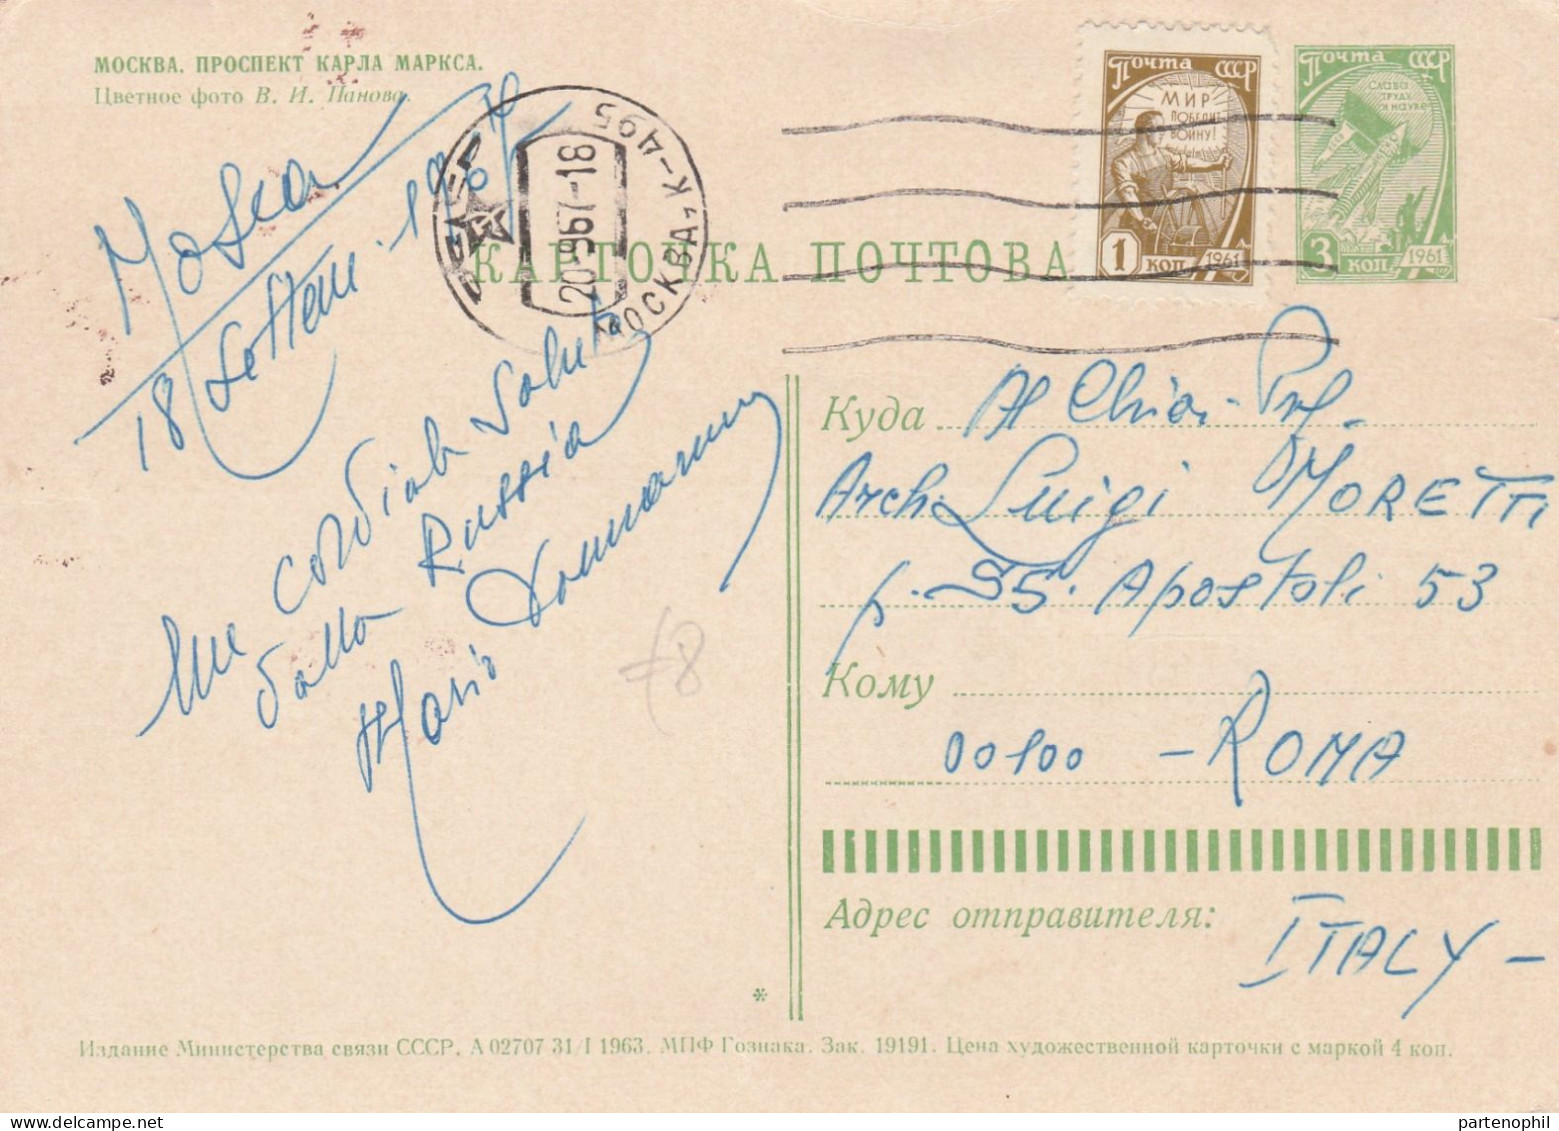 МОСКВА. ПРОСПЕКТ КАРЛА МАРКСА.
Цветное фото В. И. Панова.
Почта СССР
МИР
ПОБЕДИТ
ВОЙНУ!
1 КОП 1961
Почта СССР
СЛАВА
ТРУДУ
И НАУКЕ
3 КОП 1961
МОСКВА, К-Д95
20-967-18
КАРТОЧКА ПОЧТОВАЯ
Mosca
18 Settem. 1967
cordiali Saluti
dalla Russia
Mario
Куда
Al Chiar. Prof.
Arch. Luigi MORETTI
p. SS. Apostoli 53
Кому
00100 - ROMA
Адрес отправителя:
ITALY -
78
*
Издание Министерства связи СССР. А 02707 31/I 1963. МПФ Гознака. Зак. 19191. Цена художественной карточки с маркой 4 коп.
partenophil